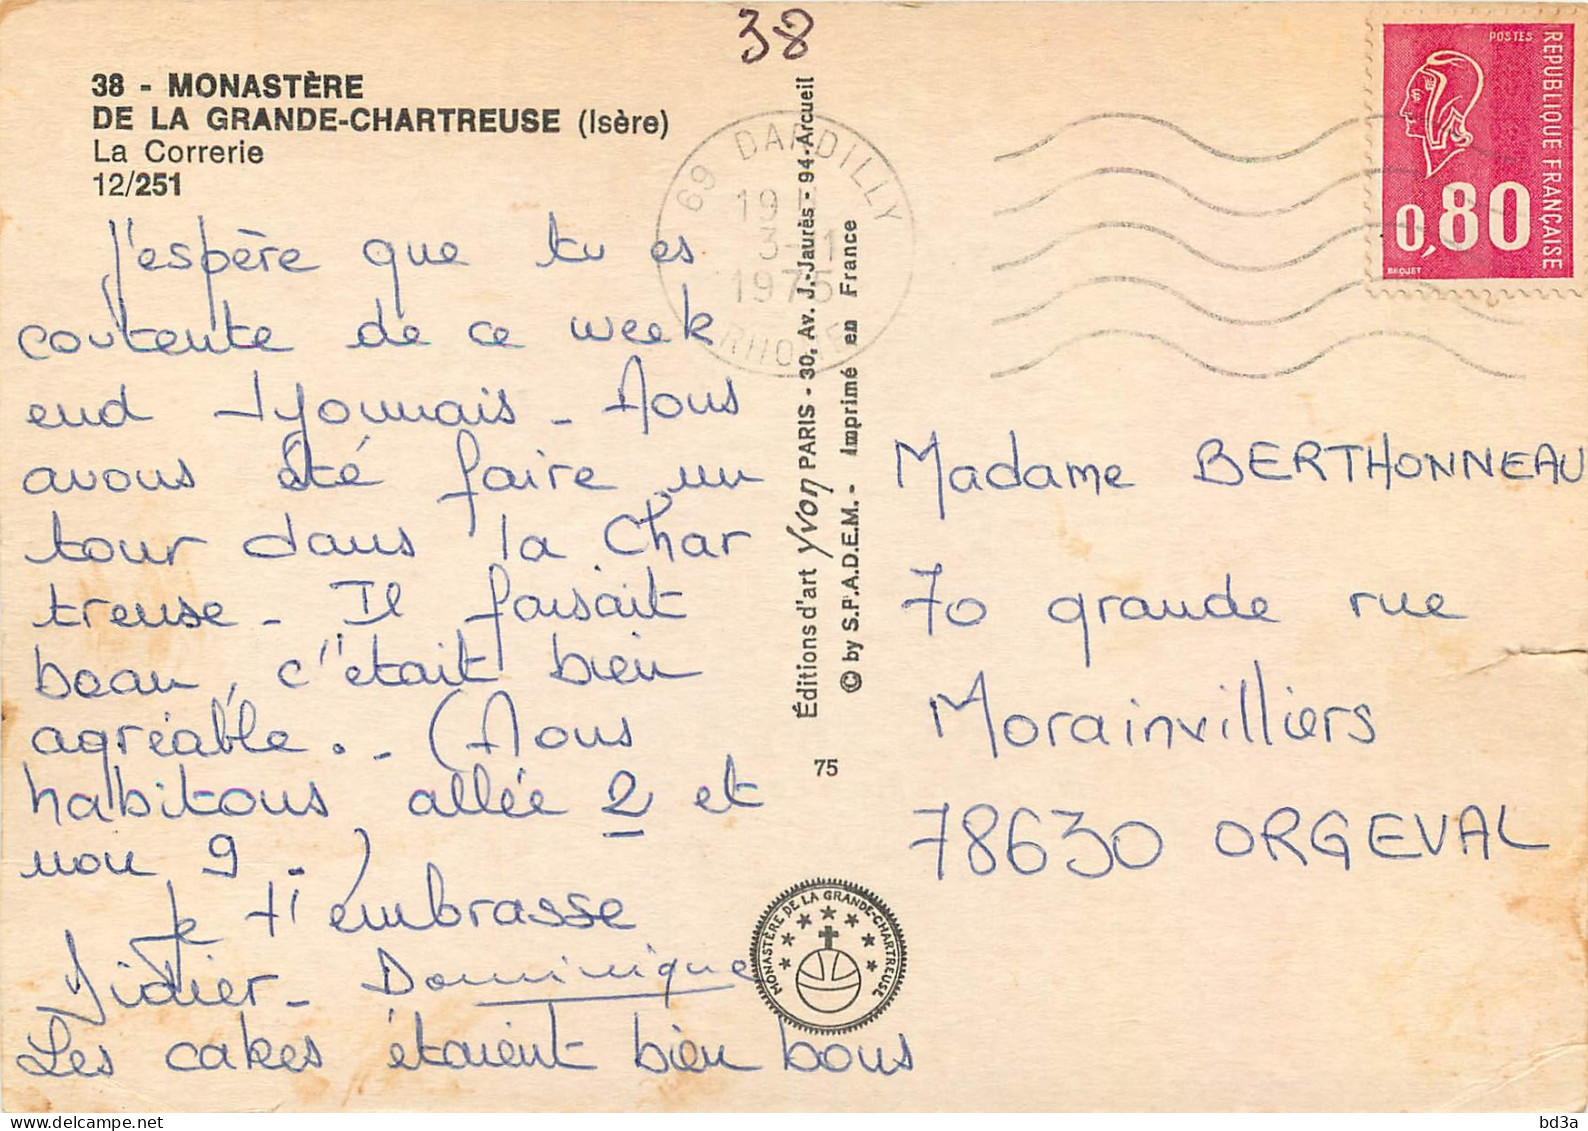 38
38 - MONASTÈRE
DE LA GRANDE-CHARTREUSE (Isère)
La Correrie
12/251
J'espère que tu es
contente de ce week
end Lyonnais - Nous
avons été faire un
tour dans la Char
treuse - Il faisait
beau, c'était bien
agréable. - (Nous
habitons allée 2 et
non 9.)
Je t'embrasse
Didier - Dominique
Les cakes étaient bien bons
69 DARDILLY
19 H
3-1
1975
RHONE
Éditions d'art Yvon PARIS - 30, Av. J.-Jaurès - 94-Arcueil
© by S.P.A.D.E.M. - Imprimé en France
75
MONASTÈRE DE LA GRANDE-CHARTREUSE
POSTES
REPUBLIQUE FRANÇAISE
0,80
BEQUET
Madame BERTHONNEAU
70 grande rue
Morainvilliers
78630 ORGEVAL
bd3a